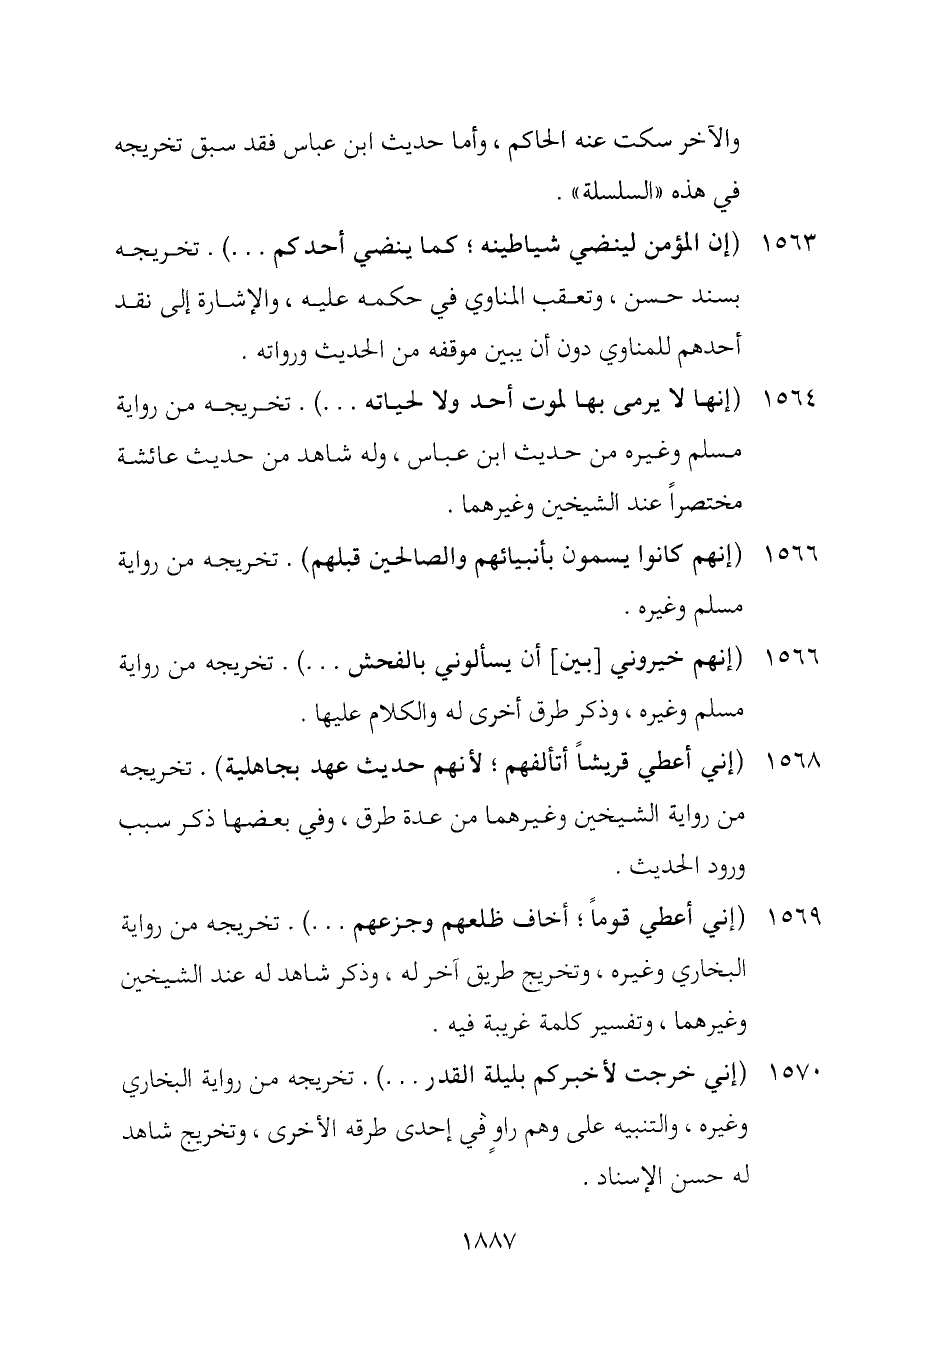 والآخر سكت عنه الحاكم ، وأما حديث ابن عباس فقد سبق تخريجه
في هذه «السلسلة» .
١٥٦٣ (إن المؤمن لينضي شياطينه ؛ كما ينضي أحدكم ...) . تخريجه
بسند حسن ، وتعقب المناوي في حكمه عليه ، والإشارة إلى نقد
أحدهم للمناوي دون أن يبين موقفه من الحديث ورواته .
١٥٦٤ (إنها لا يرمى بها لموت أحد ولا لحياته ...) . تخريجه من رواية
مسلم وغيره من حديث ابن عباس ، وله شاهد من حديث عائشة
مختصراً عند الشيخين وغيرهما .
١٥٦٦ (إنهم كانوا يسمون بأنبيائهم والصالحين قبلهم) . تخريجه من رواية
مسلم وغيره .
١٥٦٦ (إنهم خيروني [بين] أن يسألوني بالفحش ...) . تخريجه من رواية
مسلم وغيره ، وذكر طرق أخرى له والكلام عليها .
١٥٦٨ (إني أعطي قريشاً أتألفهم ؛ لأنهم حديث عهد بجاهلية) . تخريجه
من رواية الشيخين وغيرهما من عدة طرق ، وفي بعضها ذكر سبب
ورود الحديث .
١٥٦٩ (إني أعطي قوماً ؛ أخاف ظلعهم وجزعهم ...) . تخريجه من رواية
البخاري وغيره ، وتخريج طريق آخر له ، وذكر شاهد له عند الشيخين
وغيرهما ، وتفسير كلمة غريبة فيه .
١٥٧٠ (إني خرجت لأخبركم بليلة القدر ...) . تخريجه من رواية البخاري
وغيره ، والتنبيه على وهم راوٍ في إحدى طرقه الأخرى ، وتخريج شاهد
له حسن الإسناد .
١٨٨٧